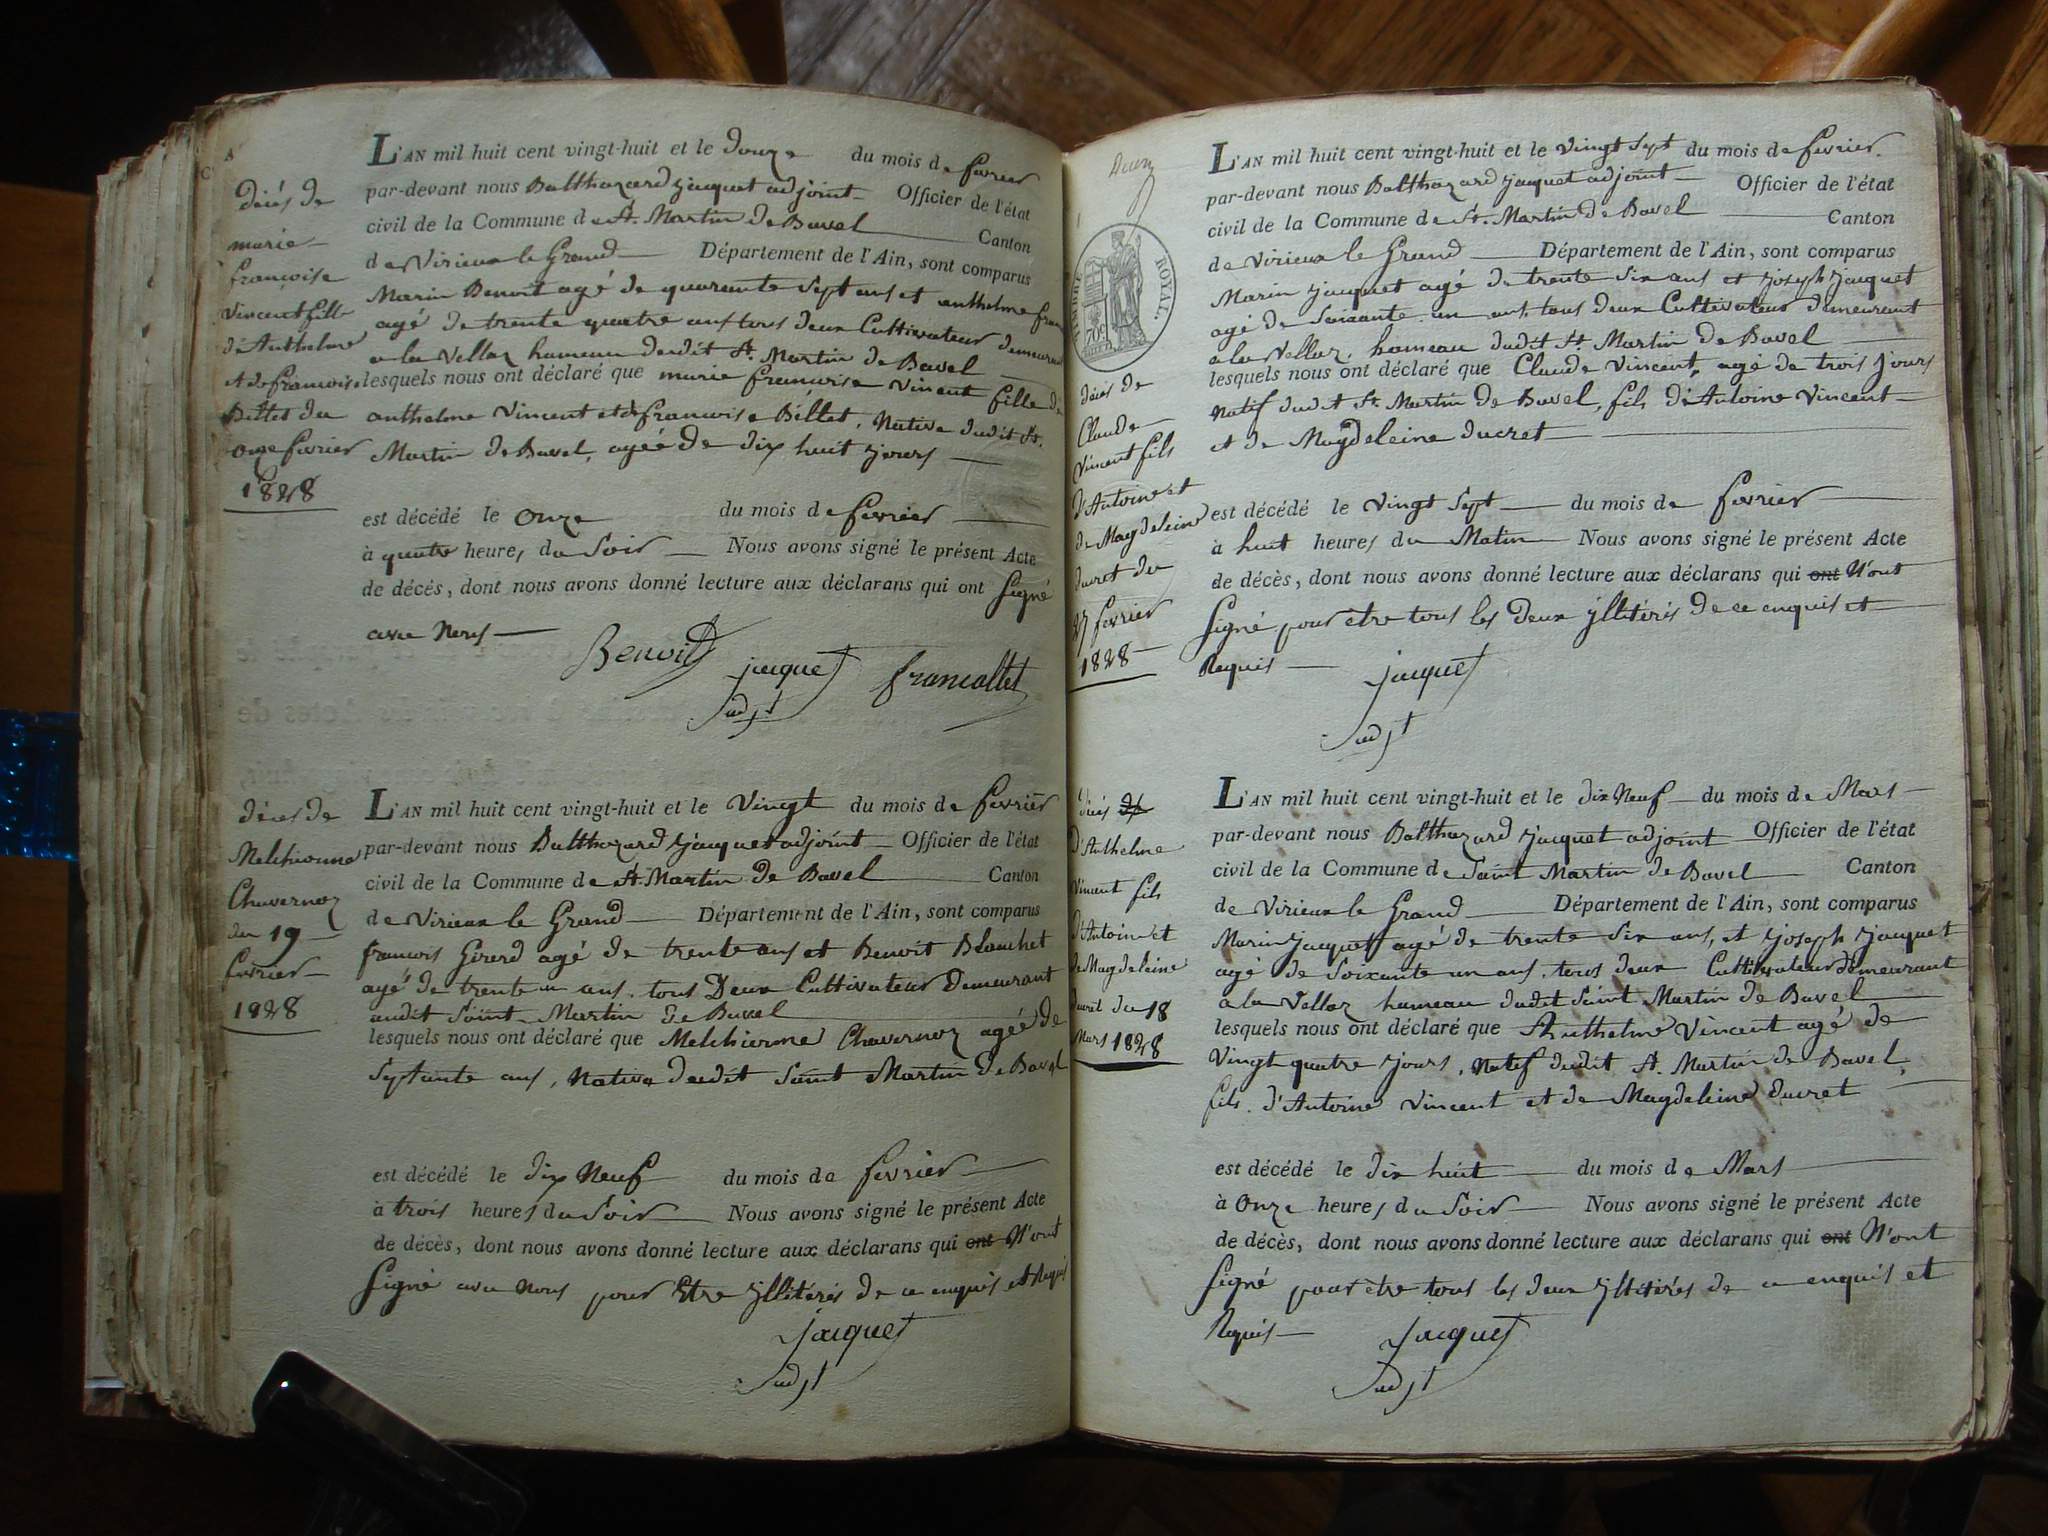 décés de
marie
françoise
Vincent fille
d'Anthelme
et de françoise
Billet du
onze fevrier
1828
L'AN mil huit cent vingt-huit et le douze du mois de fevrier
par-devant nous Balthazard jacquet adjoint Officier de l'état
civil de la Commune de St. Martin de Bavel Canton
de Virieux le Grand Département de l'Ain, sont comparus
Marin Benoit agé de quarante sept ans et anthelme
agé de trente quatre ans tous deux Cultivateur demeurant
a la Vellaz hameau dudit St. Martin de Bavel
lesquels nous ont déclaré que marie francoise Vincent fille de
anthelme Vincent et de francoise Billet, Native dudit St.
Martin de Bavel, agée de dix huit jours
est décédé le onze du mois de fevrier
à quatre heures du Soir Nous avons signé le présent Acte
de décés, dont nous avons donné lecture aux déclarans qui ont Signé
avec Nous
Benoit jacquet francallet
adjt
décés de
Melchionne
Chavernoz
du 19
fevrier
1828
L'AN mil huit cent vingt-huit et le Vingt du mois de fevrier
par-devant nous Balthazard jacquet adjoint Officier de l'état
civil de la Commune de St. Martin de Bavel Canton
de Virieux le Grand Département de l'Ain, sont comparus
francois Girerd agé de trente ans et Benoit Blanchet
agé de trente un ans. tous Deux Cultivateur Demeurant
audit Saint Martin de Bavel
lesquels nous ont déclaré que Melchionne Chavernoz agée de
Septante ans, Native dudit Saint Martin de Bavel
est décédé le dix Neuf du mois de fevrier
à trois heures du Soir Nous avons signé le présent Acte
de décès, dont nous avons donné lecture aux déclarans qui ont N'ont
Signé avec Nous pour Etre yllitérés de ce enquis et Requis
jacquet
adjt
TIMBRE ROYAL
70c
décés de
Claude
Vincent fils
d'Antoine et
de Magdeleine
ducret du
27 fevrier
1828
L'AN mil huit cent vingt-huit et le Vingt Sept du mois de fevrier
par-devant nous Balthazard jacquet adjoint Officier de l'état
civil de la Commune de St. Martin de Bavel Canton
de Virieux le Grand Département de l'Ain, sont comparus
Marin jacquet agé de trente Six ans et joseph jacquet
agé de Soixante un ans, tous deux Cultivateur demeurant
a la Vellaz, hameau dudit St Martin de Bavel
lesquels nous ont déclaré que Claude Vincent, agé de trois jours
Natif dudit St Martin de Bavel, fils d'Antoine Vincent
et de Magdeleine ducret
est décédé le Vingt Sept du mois de fevrier
à huit heures du Matin Nous avons signé le présent Acte
de décès, dont nous avons donné lecture aux déclarans qui ont N'ont
Signé pour être tous les deux yllitérés de ce enquis et
Requis jacquet
adjt
décés
d'Anthelme
Vincent fils
d'Antoine et
de Magdeleine
ducret du 18
Mars 1828
L'AN mil huit cent vingt-huit et le dix Neuf du mois de Mars
par-devant nous Balthazard jacquet adjoint Officier de l'état
civil de la Commune de Saint Martin de Bavel Canton
de Virieux le Grand Département de l'Ain, sont comparus
Marin jacquet agé de trente Six ans, et joseph jacquet
agé de Soixante un ans, tous deux Cultivateur demeurant
a la Vellaz hameau dudit Saint Martin de Bavel
lesquels nous ont déclaré que Anthelme Vincent agé de
Vingt quatre jours, Natif dudit St. Martin de Bavel,
fils d'Antoine Vincent et de Magdeleine ducret
est décédé le dix huit du mois de Mars
à Onze heures du Soir Nous avons signé le présent Acte
de décès, dont nous avons donné lecture aux déclarans qui ont N'ont
Signé pour être tous les deux yllitérés de ce enquis et
Requis jacquet
adjt